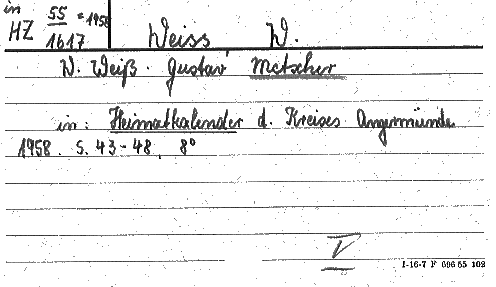 in
HZ 55/1617 =1958
Weiss W.
W. Weiß. Gustav Metscher
in: Heimatkalender d. Kreises Angermünde
1958. S. 43-48, 8°
V
I-16-7 F 696 65 102